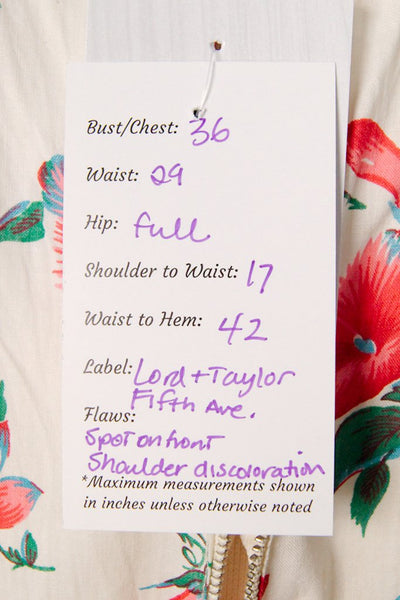 Bust/Chest: 36
Waist: 29
Hip: full
Shoulder to Waist: 17
Waist to Hem: 42
Label: Lord + Taylor
Fifth Ave.
Flaws:
Spot on front
Shoulder discoloration
*Maximum measurements shown
in inches unless otherwise noted